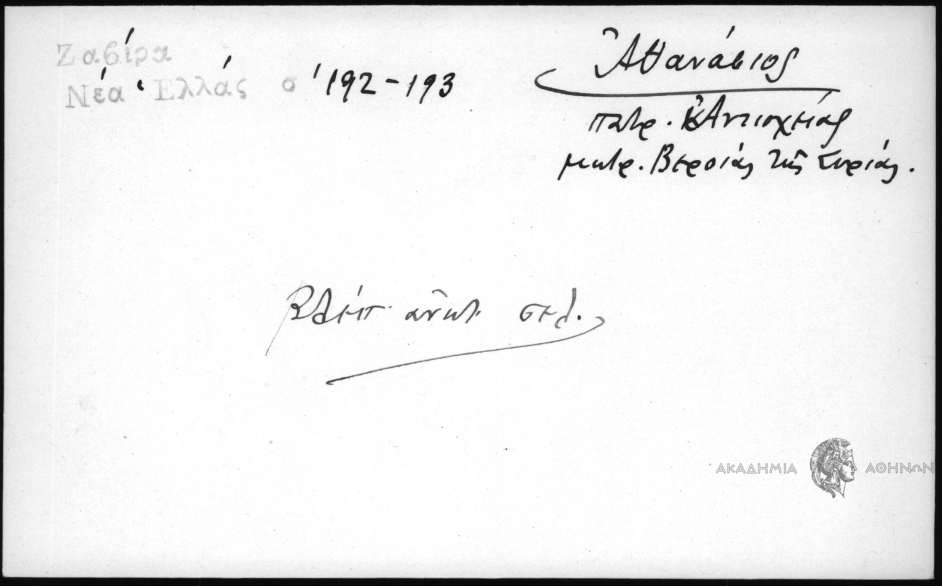 Ζαβίρα
Νέα Ἑλλάς σ 192-193
Ἀθανάσιος
πατρ. Ἀντιοχείας
μητρ. Βεροίας τῆς Συρίας.
Βλέπ ἀνωτ σελ.
ΑΚΑΔΗΜΙΑ ΑΘΗΝΩΝ